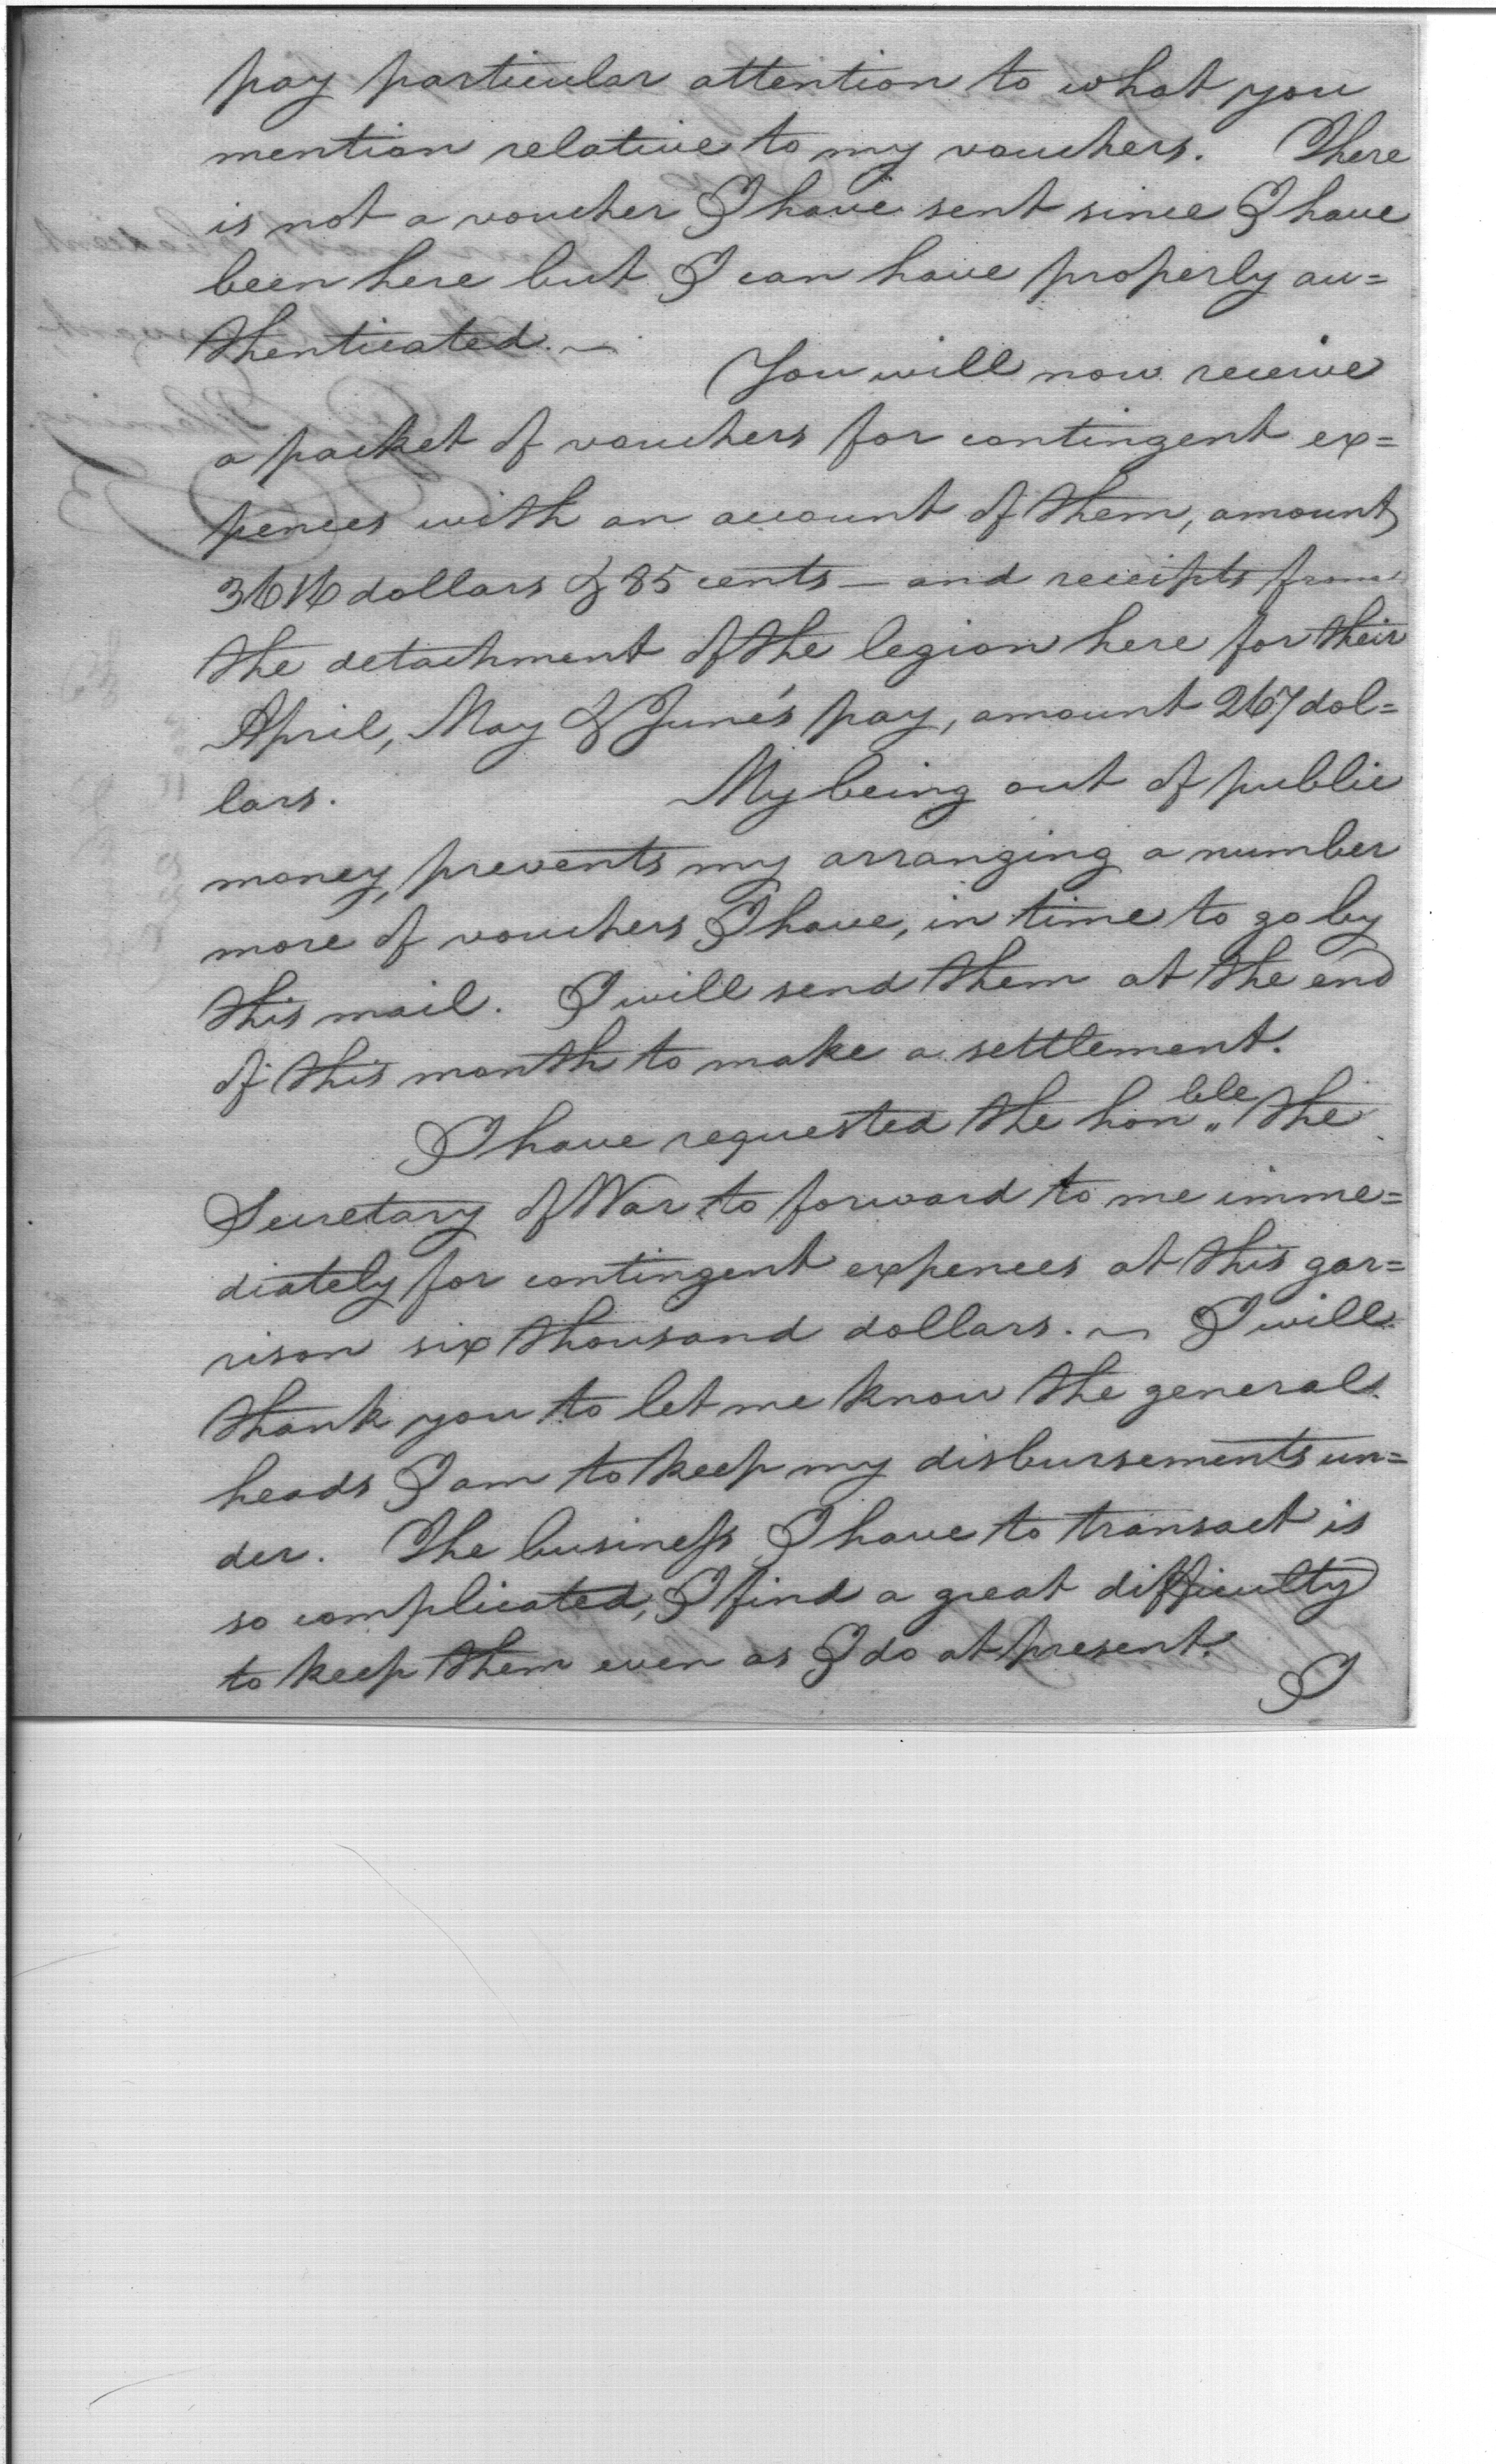 pay particular attention to what you
mention relative to my vouchers. There
is not a voucher I have sent since I have
been here but I can have properly au=
thenticated. ~
You will now receive
a packet of vouchers for contingent ex=
pences with an account of them, amount
3616 dollars & 85 cents — and receipts from
the detachment of the legion here for their
April, May & June's pay, amount 267 dol=
lars. My being out of public
money, prevents my arranging a number
more of vouchers I have, in time to go by
this mail. I will send them at the end
of this month to make a settlement.
I have requested the hon„ble the
Secretary of War to forward to me imme=
diately for contingent expences at this gar=
rison six thousand dollars. ~ I will
thank you to let me know the general
heads I am to keep my disbursements un=
der. The business I have to transact is
so complicated, I find a great difficulty
to keep them even as I do at present.
I